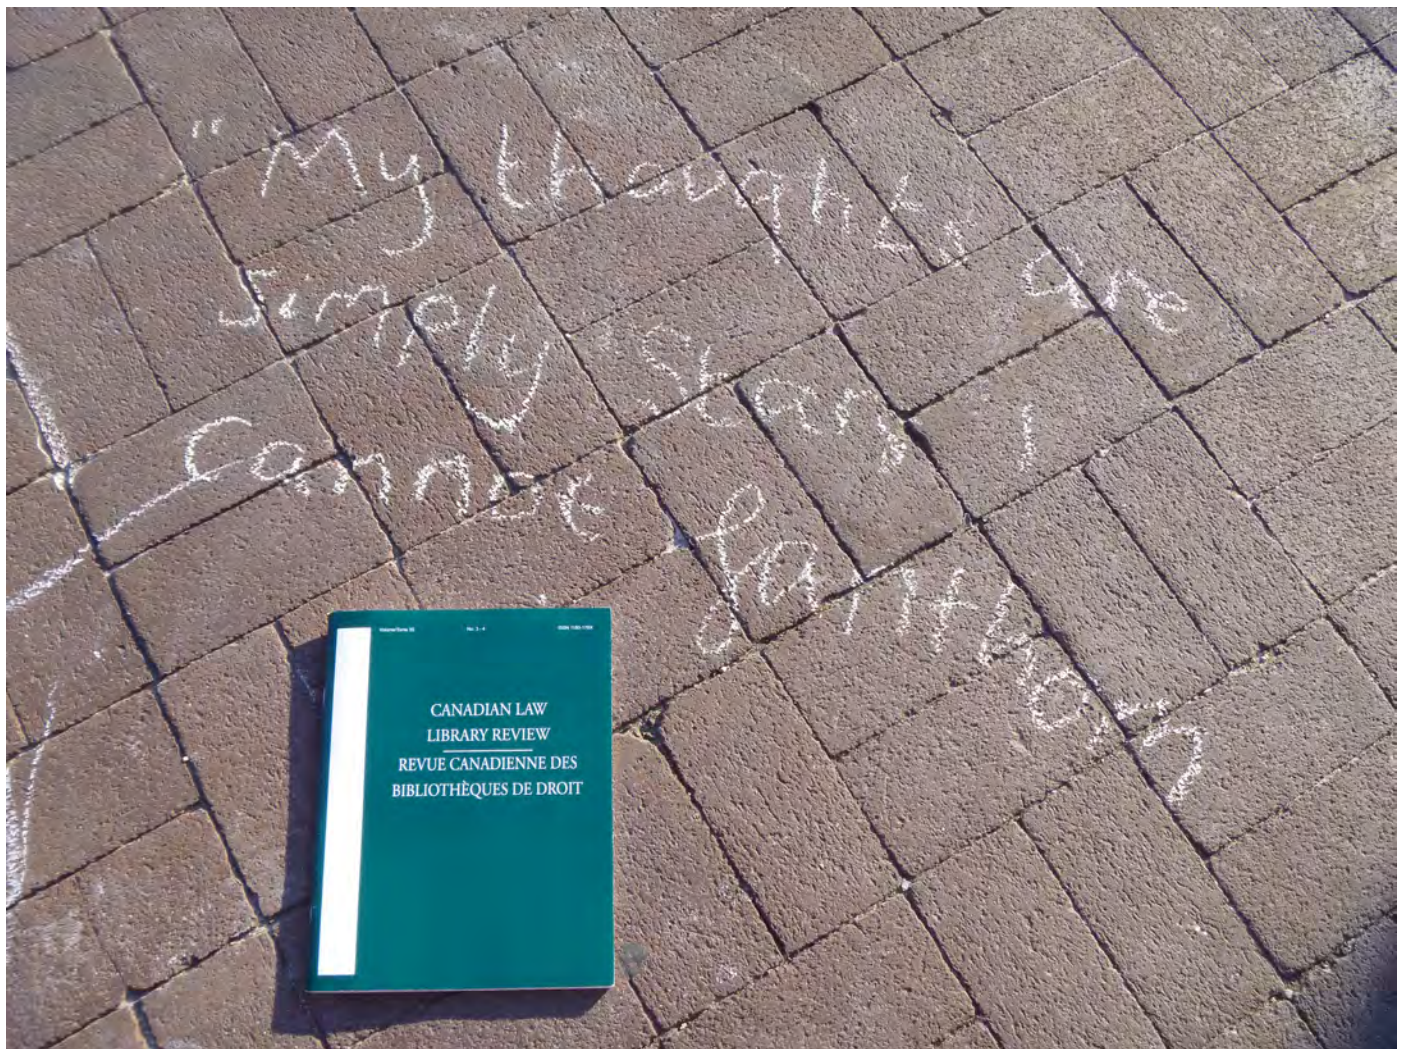 "My thoughts are
Simply stars I
Cannot fanthom
Volume/Tome No. ISSN
CANADIAN LAW
LIBRARY REVIEW
REVUE CANADIENNE DES
BIBLIOTHÈQUES DE DROIT